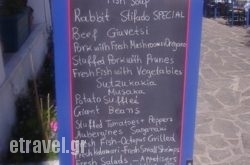 Fish Soup
Rabbit Stifado SPECIAL
Beef Giuvetsi
Pork with Fresh Mushrooms Oregano
Stuffed Pork with Prunes
Fresh Fish with Vegetables
Sutzukakia
Musaka
Potato Sufflei
Giant Beans
Stuffed Tomatoes + Peppers
Aubergines Saganaki
Fresh Fish - Octopus Grilled
Fresh Kalamari - Fresh Small Shrimps
Fresh Salads - Appetisers
etravel.gr
etravel.gr